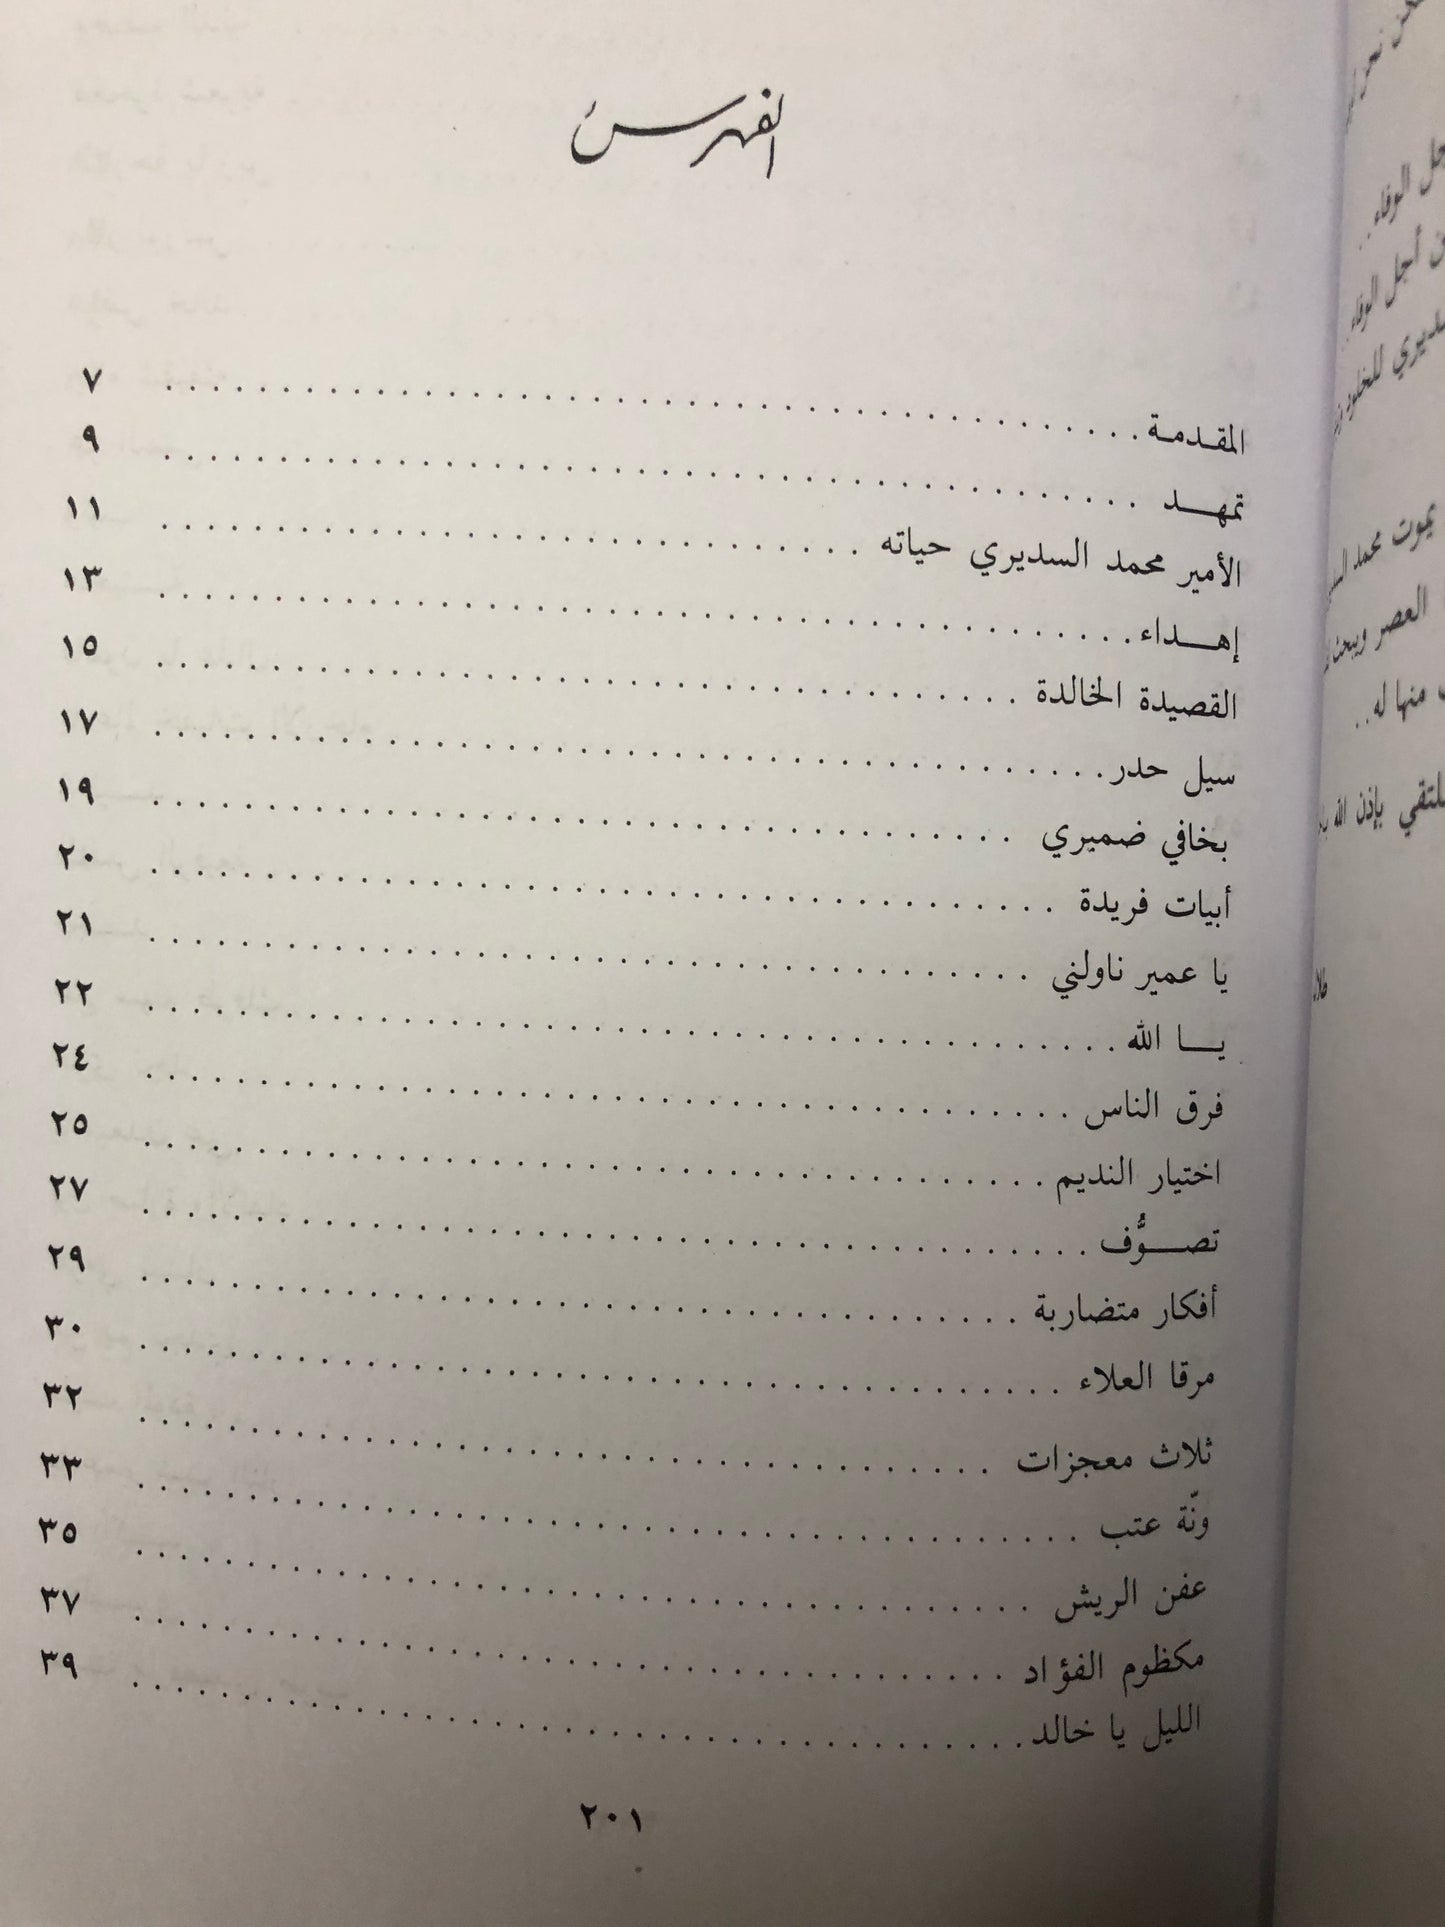 الفهرس
المقدمة ........ ٧
تمهـــد ........ ٩
الأمير محمد السديري حياته ........ ١١
إهـــداء ........ ١٣
القصيدة الخالدة ........ ١٥
سيل حدر ........ ١٧
بخافي ضميري ........ ١٩
أبيات فريدة ........ ٢٠
يا عمير ناولني ........ ٢١
يـــا الله ........ ٢٢
فرق الناس ........ ٢٤
اختيار النديم ........ ٢٥
تصـــوُّف ........ ٢٧
أفكار متضاربة ........ ٢٩
مرقا العلاء ........ ٣٠
ثلاث معجزات ........ ٣٢
ونّة عتب ........ ٣٣
عفن الريش ........ ٣٥
مكظوم الفؤاد ........ ٣٧
الليل يا خالد ........ ٣٩
٢٠١
نحن
الوفاء ..
أجل الوفاء ..
للخلود
يموت محمد
العصر ويبحث
منها له ..
بإذن الله